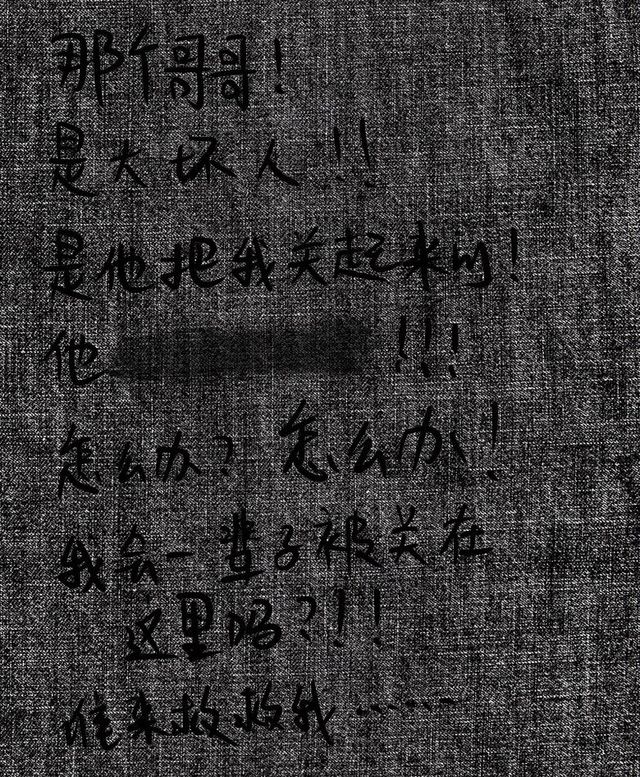 那个哥哥！
是大坏人！！
是他把我关起来的！
他！！！
怎么办？怎么办！
我会一辈子被关在
这里吗？！！
谁来救救我……